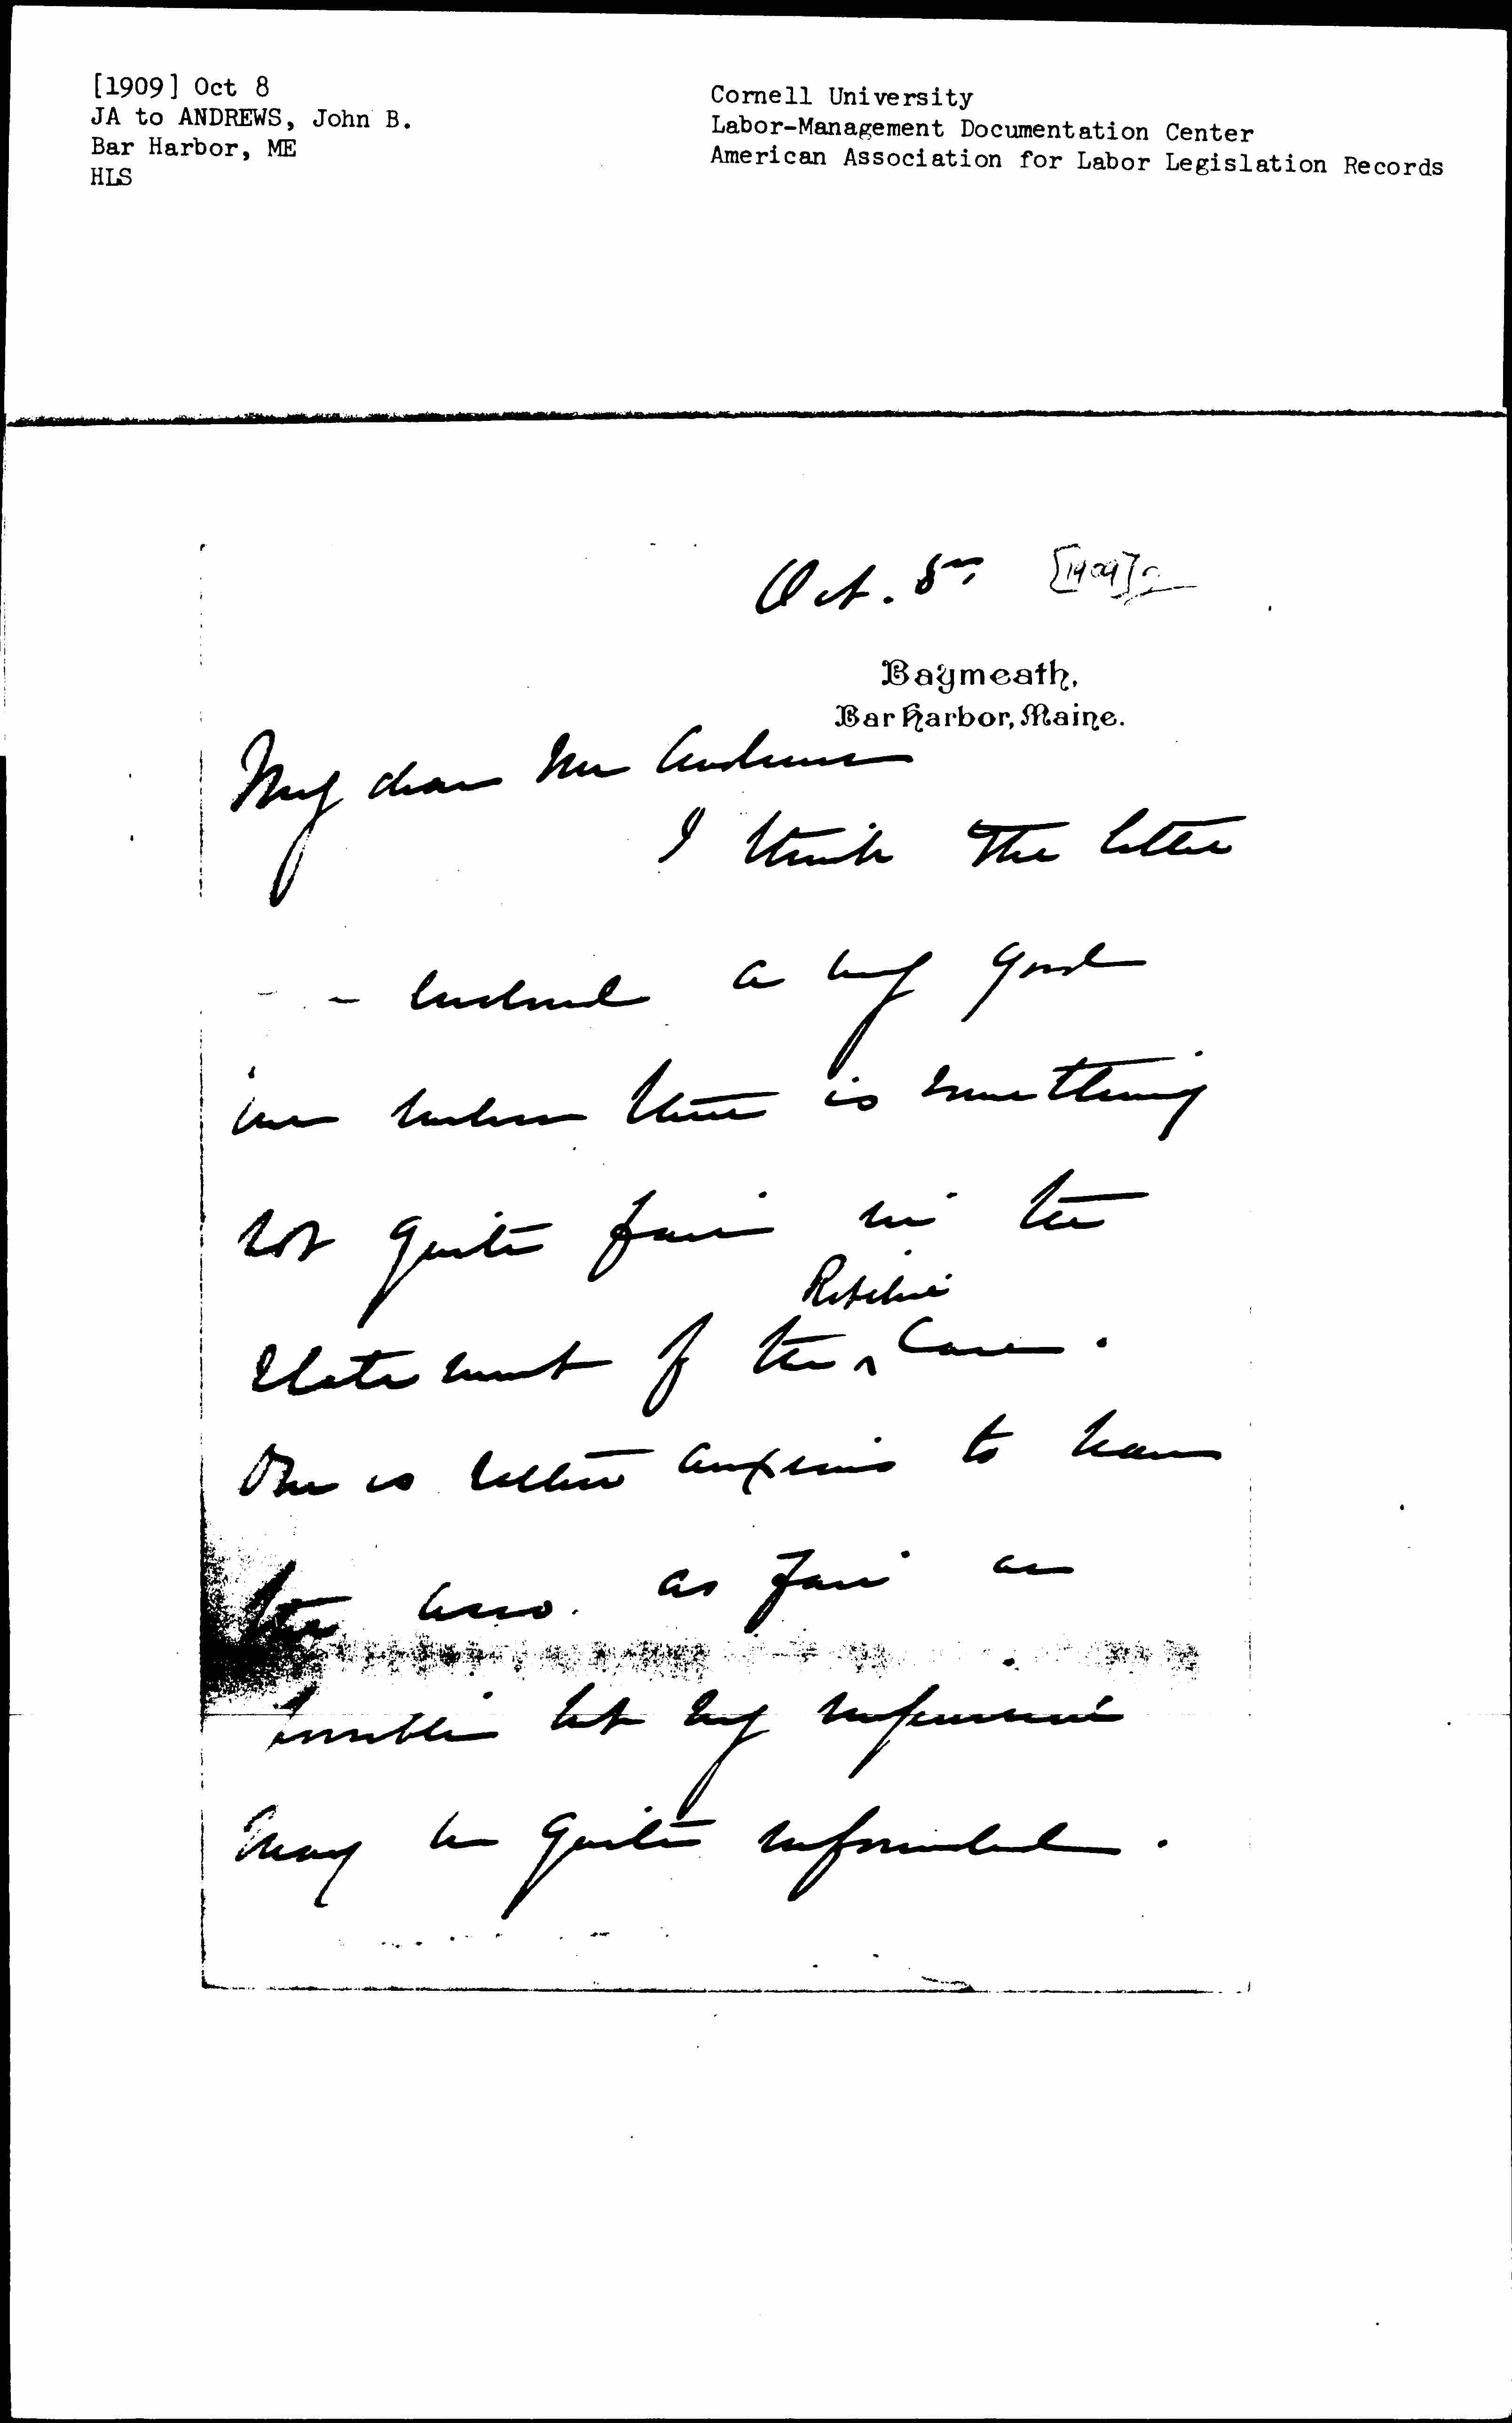 [1909] Oct 8
JA to ANDREWS, John B.
Bar Harbor, ME
HLS
Cornell University
Labor-Management Documentation Center
American Association for Labor Legislation Records
Oct. 8" [1909]
Baymeath,
Bar Harbor, Maine.
My dear Mr Andrews
I think the letter
enclosed a very good
one unless there is something
not quite fair in the
Ritchie
statement of the ^ Case.
One is rather anxious to have
the asso. as fair as
possible but my
may be quite unfounded.